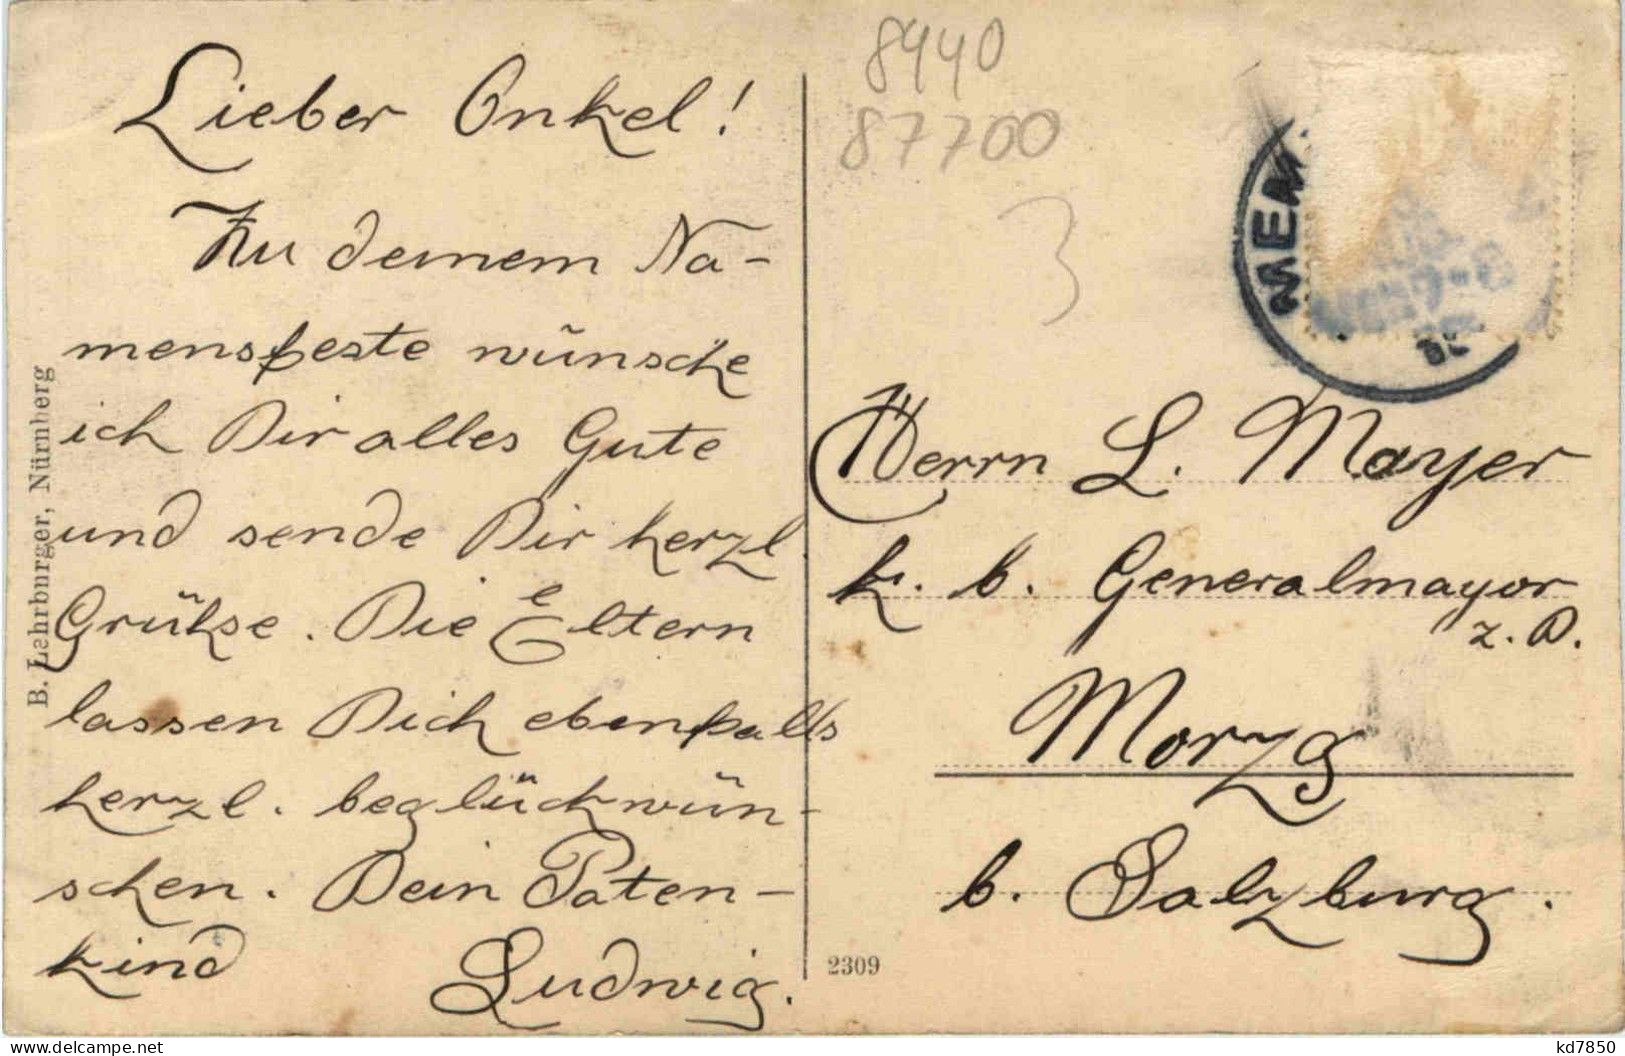 Lieber Onkel!
Zu deinem Na-
mensfeste wünsche
ich Dir alles Gute
und sende Dir herzl.
Grühse. Die Eltern
lassen Dich ebenfalls
herzl. beglückwün-
schen. Dein Paten-
kind Ludwig.
B. Lehrburger, Nürnberg
8940
87700
3
MEM
Herrn L. Mayer
k. b. Generalmayor
z. D.
Morzg
b. Salzburg.
2309
delcampe.net
kd7850